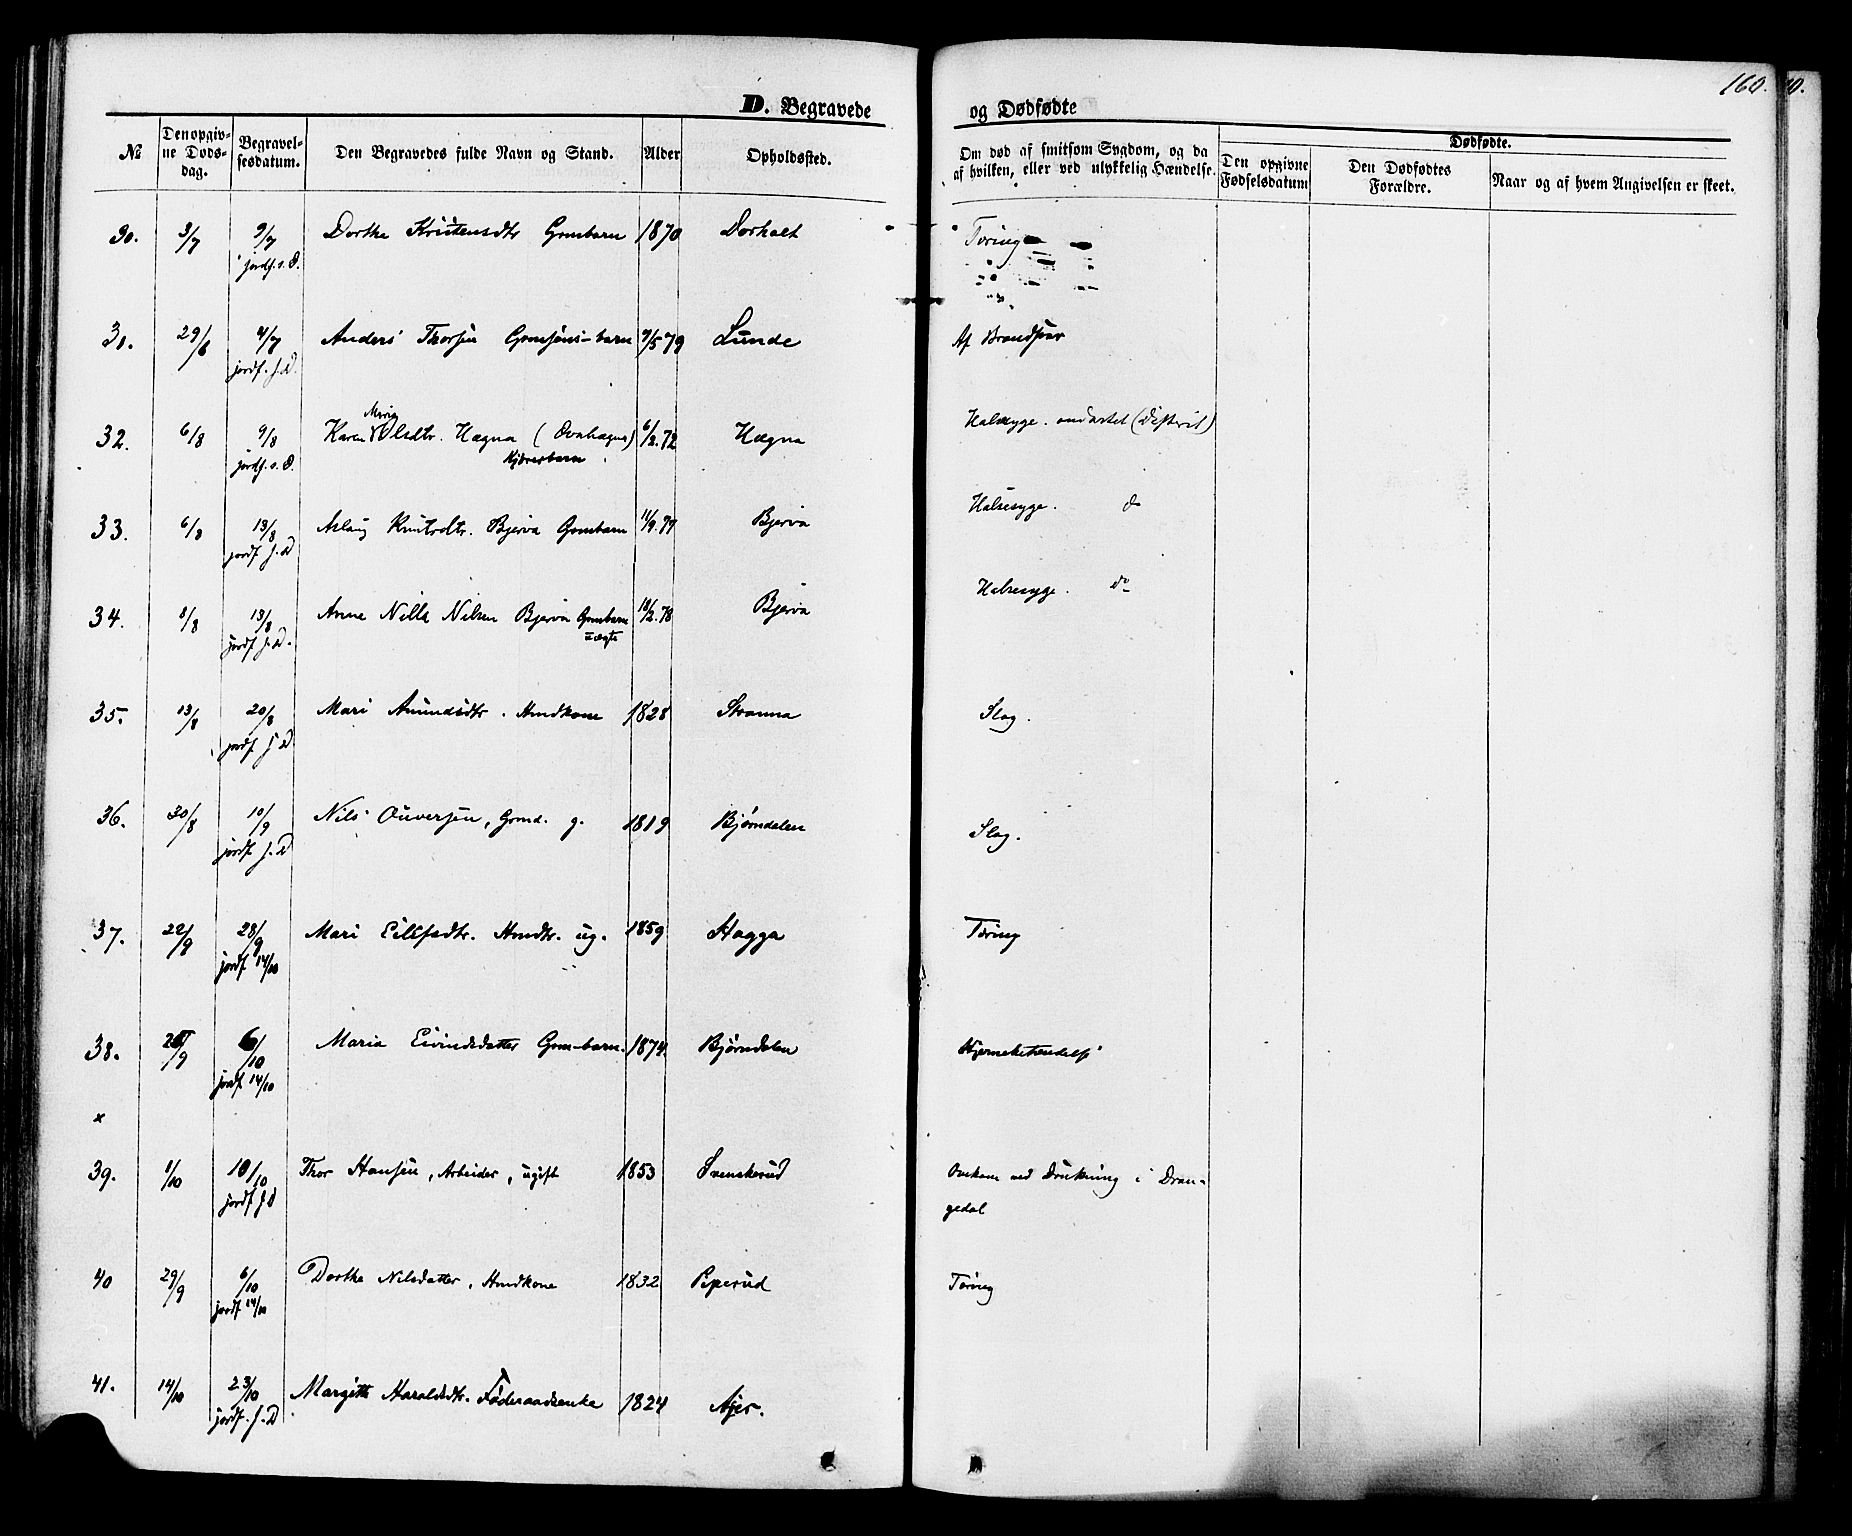 160.
D. Begravede og Dødfødte
№
Den opgiv-
ne Døds-
dag.
Begravel-
sesdatum.
Den Begravedes fulde Navn og Stand.
Alder
Opholdssted.
Om død af smitsom Sygdom, og da
af hvilken, eller ved ulykkelig Hændelse.
Dødfødte.
Den opgivne
Fødselsdatum
Den Dødfødtes
Forældre.
Naar og af hvem Angivelsen er skeet.
30. 3/7 9/7 Dorthe Kristensdtr Gmbarn 1870 Dorholt Tæring
jordf. s. D.
31. 29/6 4/7 Anders Thorsen Gmsøns-barn 9/5 79 Lunde Af Brandsaar
jordf. s. D.
Maria
32. 6/8 9/8 Karen Olsdtr. Hægna (Ovahægna) 6/2.72 Hægna Halssyge. ondartet (Difterit)
jordf. s. D. Kjøresbarn
33. 6/8 13/8 Aslaug Knutsdtr. Bjerva Gmbarn 11/9.77 Bjerva Halssyge. do
jordf s. D
34. 8/8 13/8 Anne Nille Nilsen Bjerva Gmbarn 18/2.78 Bjerva Halssyge. do
jordf s. D. uægte
35. 13/8 20/8 Mari Amundsdtr. Hmdkone 1828 Stranna Slag.
jordf s D.
36. 30/8 10/9 Nils Ouversen, Grmd. g. 1819 Bjørndalen Slag.
jordf s. D
37. 22/9 28/9 Mari Eilefsdtr. Hmdtr. ug. 1859 Hagga Tæring
jordf 14/10
38. 25/9 6/10 Maria Eivindsdatter Gm-barn. 1874. Bjørndalen Hjernebetændelse
jordf 14/10
x
39. 1/10 10/10 Thor Hansen, Arbeider, ugift 1853 Svenskerud Omkom ved Drukning i Dran-
jordf s. D gedal
40 29/9 6/10 Dorthe Nilsdatter, Hmdkone 1832 Peperud Tæring
jordf 14/10
41. 14/10 23/10 Margitte Haroldsdtr. Føderaadsenke 1824 Ajer.
jordf. s. D